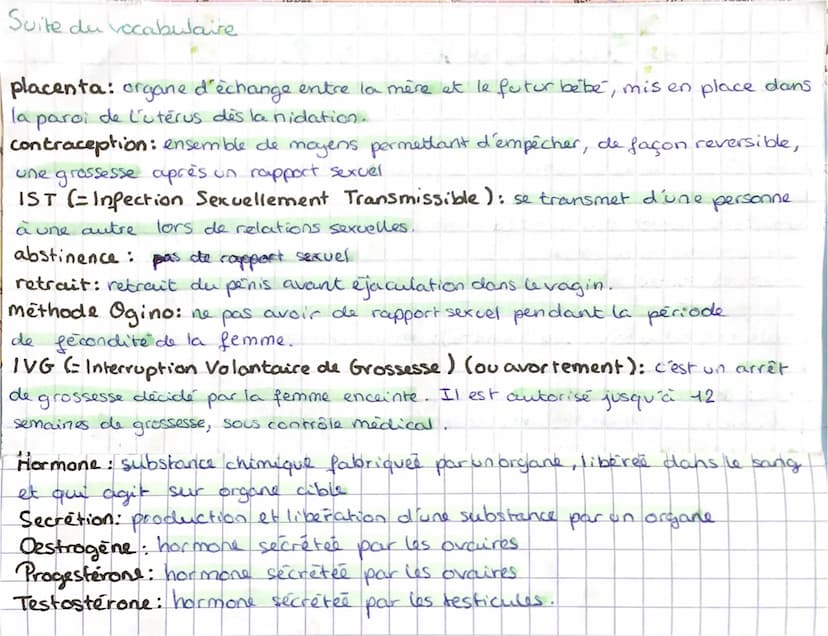 Suite du vocabulaire
placenta: organe d'échange entre la mère et le futur bébé, mis en place dans
la paroi de l'utérus dès la nidation.
contraception: ensemble de moyens permettant d'empêcher, de façon reversible,
une grossesse après un rapport sexuel
IST (= Infection Sexuellement Transmissible): se transmet d'une personne
à une autre lors de relations sexuelles.
abstinence: pas de rapport sexuel
retrait: retrait du pénis avant éjaculation dans le vagin.
méthode Ogino: ne pas avoir de rapport sexuel pendant la période
de fécondité de la femme.
IVG (= Interruption Volontaire de Grossesse) (ou avortement): c'est un arrêt
de grossesse décidé par la femme enceinte. Il est autorisé jusqu'à 12
semaines de grossesse, sous contrôle médical.
Hormone: substance chimique fabriqueé par un organe, libéreé dans le sang
et qui agit sur organe cible
Secrétion: production et libération d'une substance par un organe
Oestrogène: hormone secrétéé par les ovaires
Progestérone: hormone sécrétéé par les ovaires
Testostérone: hormone sécrétéé par les testicules.